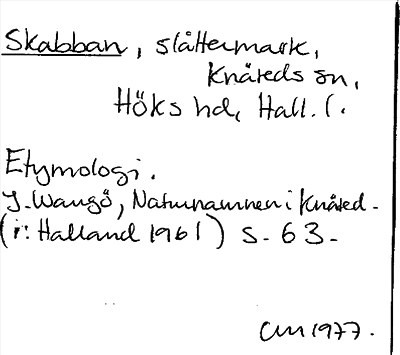 Skabban, slåttermark,
Knäreds sn,
Höks hd, Hall. l.
Etymologi.
J. Wangö, Naturnamnen i Knäred.
(i: Halland 1961) s. 63.
CM 1977.